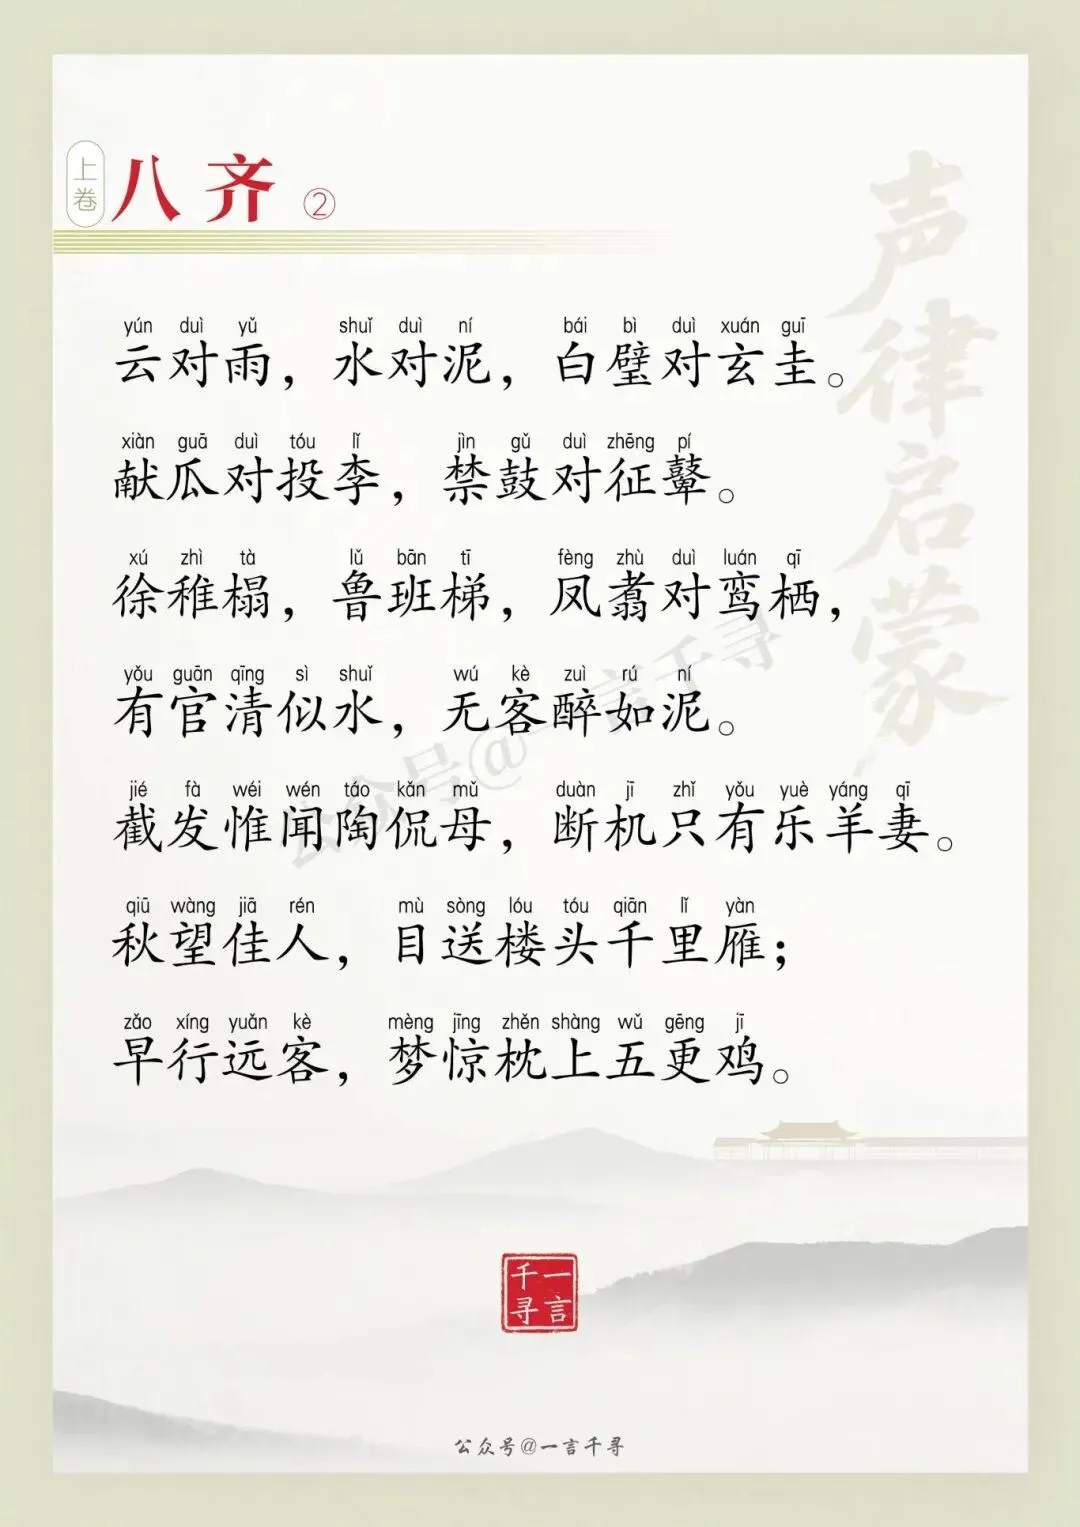 上卷
八齐 ②
声律启蒙
yún duì yǔ shuǐ duì ní bái bì duì xuán guī
云对雨，水对泥，白璧对玄圭。
xiàn guā duì tóu lǐ jìn gǔ duì zhēng pí
献瓜对投李，禁鼓对征鼙。
xú zhì tà lǔ bān tī fèng zhù duì luán qī
徐稚榻，鲁班梯，凤翥对鸾栖，
yǒu guān qīng sì shuǐ wú kè zuì rú ní
有官清似水，无客醉如泥。
jié fà wéi wén táo kǎn mǔ duàn jī zhǐ yǒu yuè yáng qī
截发惟闻陶侃母，断机只有乐羊妻。
qiū wàng jiā rén mù sòng lóu tóu qiān lǐ yàn
秋望佳人，目送楼头千里雁；
zǎo xíng yuǎn kè mèng jīng zhěn shàng wǔ gēng jī
早行远客，梦惊枕上五更鸡。
公众号@一言千寻
一言千寻
公众号@一言千寻